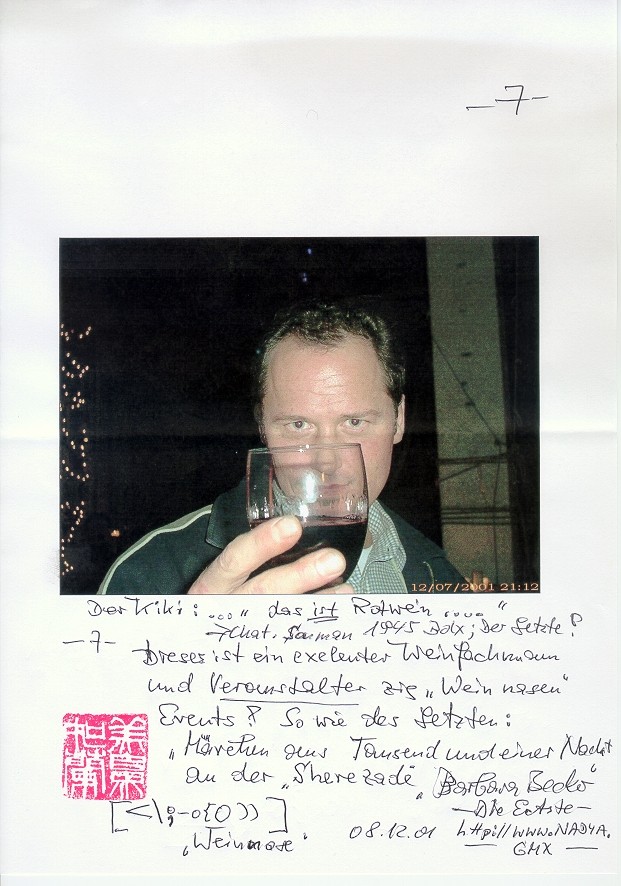 -7-
12/07/2001 21:12
Der Kiki: „...." das ist Rotwein ....."
→ Chat. 1945 Bdx; Der Letzte?
-7-
Dieser ist ein exelenter Weinfachmann
und Veranstalter zig „Weinnasen"
Events? So wie des Letzten:
„Märchen aus Tausend und einer Nacht
an der „Sherezade" Barbara
- Die Echste -
[<\;-o{O))]
„Weinnase"
08.12.01 http://www.NADYA.
GMX -